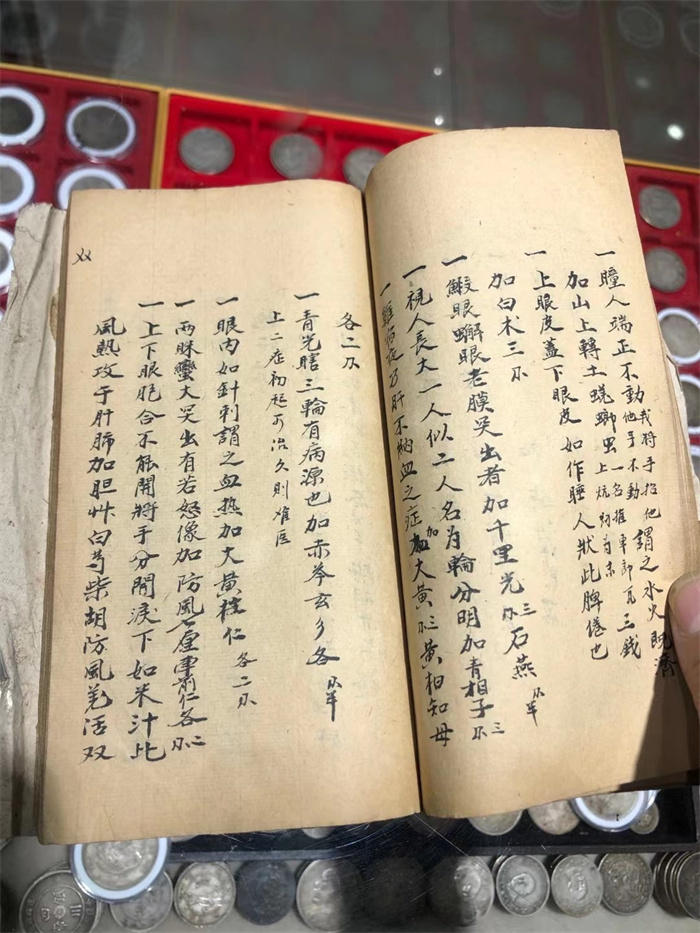 一瞳人端正不動我将手指他他手不動謂之水火既濟
加山上轉土蜣螂虫一名推車郎瓦上炕三錢
一上眼皮蓋下眼皮如作睡人狀此脾倦也
加白术三
一鰕眼蠏眼老膜哭出者加千里光三石燕
一視人長大一人似二人名为輪分明加青相子三
肝不納血之症加大黄三黄柏知母
各二
一青光瞎三輪有病源也加赤芩玄多各
上二症初起可冶久則难医
一眼内如針刺謂之血热加大黄桂仁各二
一两眯蠻大哭出有若怒像加防風仁各二
一上下眼胞合不能開將手分開淚下如米汁此
風熱攻于肝肺加胆艸白芍柴胡防風羌活双